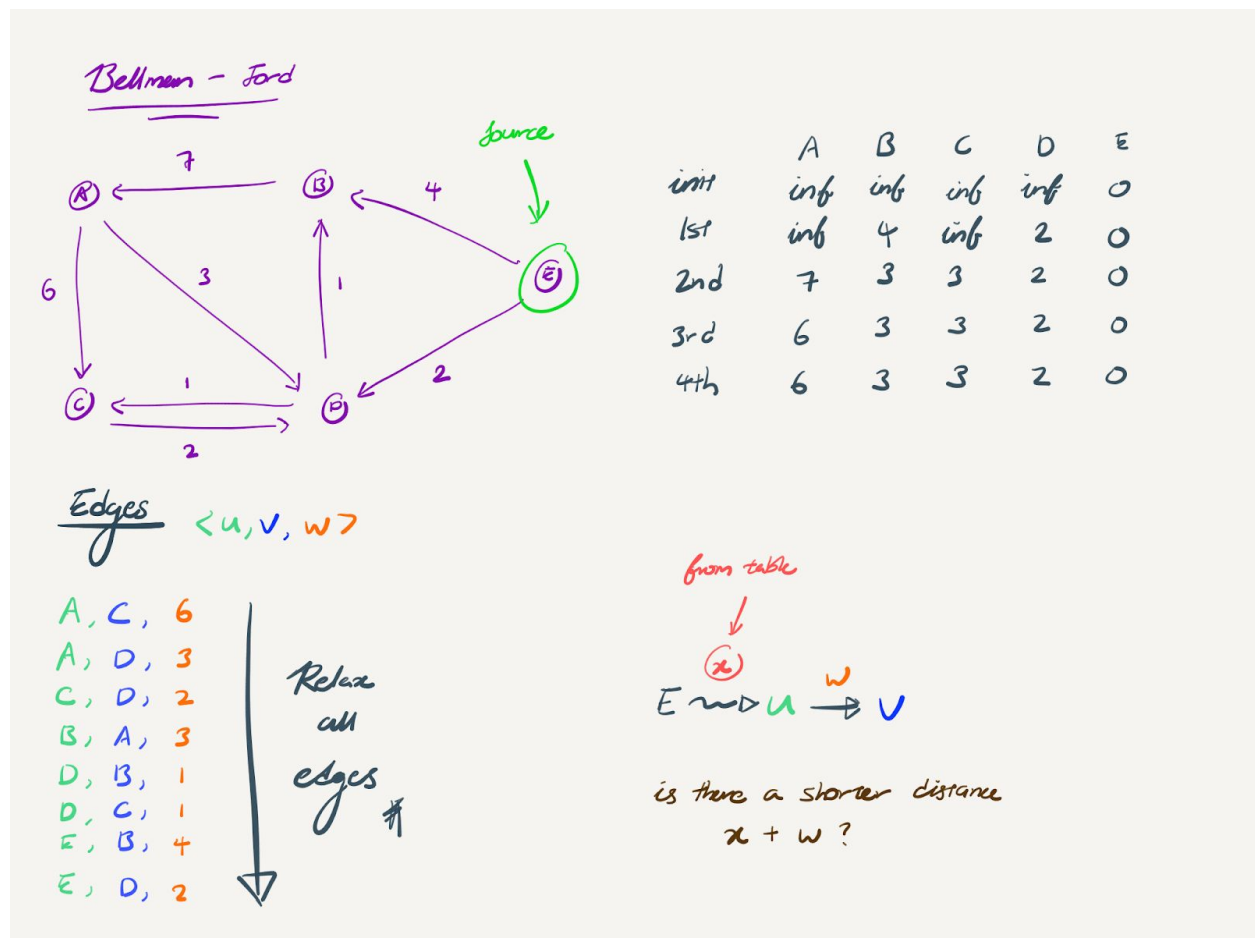 Bellman - Ford
source
7
4
A
B
E
6
3
1
2
1
C
D
2
A B C D E
init inf inf inf inf 0
1st inf 4 inf 2 0
2nd 7 3 3 2 0
3rd 6 3 3 2 0
4th 6 3 3 2 0
Edges <u, v, w>
A, C, 6
A, D, 3
C, D, 2
B, A, 3
D, B, 1
D, C, 1
E, B, 4
E, D, 2
Relax
all
edges
from table
x
w
E u v
is there a shorter distance
x + w ?